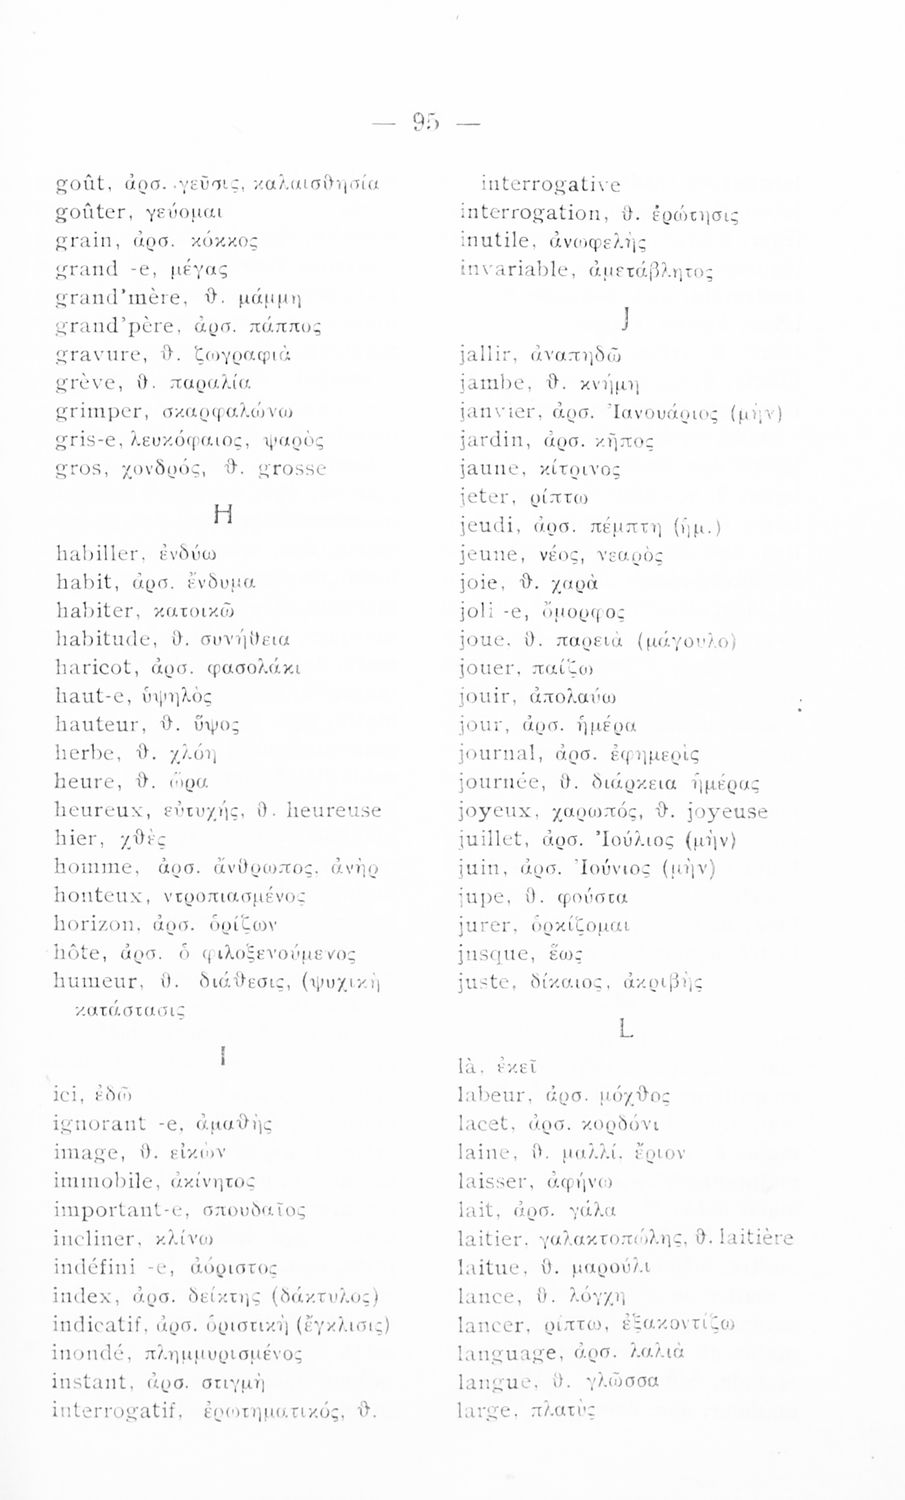 — 95 —
goût, ἀρσ. γεῦσις, καλαισθησία
goûter, γεύομαι
grain, ἀρσ. κόκκος
grand -e, μέγας
grand'mère, θ. μάμμη
grand'père, ἀρσ. πάππος
gravure, θ. ζωγραφιὰ
grève, θ. παραλία
grimper, σκαρφαλώνω
gris-e, λευκόφαιος, ψαρὸς
gros, χονδρός, θ. grosse
H
habiller, ἐνδύω
habit, ἀρσ. ἔνδυμα
habiter, κατοικῶ
habitude, θ. συνήθεια
haricot, ἀρσ. φασολάκι
haut-e, ὑψηλὸς
hauteur, θ. ὕψος
herbe, θ. χλόη
heure, θ. ὥρα
heureux, εὐτυχής, θ. heureuse
hier, χθὲς
homme, ἀρσ. ἄνθρωπος, ἀνὴρ
honteux, ντροπιασμένος
horizon, ἀρσ. ὁρίζων
hôte, ἀρσ. ὁ φιλοξενούμενος
humeur, θ. διάθεσις, (ψυχικὴ
κατάστασις
I
ici, ἐδῶ
ignorant -e, ἀμαθὴς
image, θ. εἰκὼν
immobile, ἀκίνητος
important-e, σπουδαῖος
incliner, κλίνω
indéfini -e, ἀόριστος
index, ἀρσ. δείκτης (δάκτυλος)
indicatif, ἀρσ. ὁριστικὴ (ἔγκλισις)
inondé, πλημμυρισμένος
instant, ἀρσ. στιγμὴ
interrogatif, ἐρωτηματικός, θ.
interrogative
interrogation, θ. ἐρώτησις
inutile, ἀνωφελὴς
invariable, ἀμετάβλητος
J
jallir, ἀναπηδῶ
jambe, θ. κνήμη
janvier, ἀρσ. Ἰανουάριος (μὴν)
jardin, ἀρσ. κῆπος
jaune, κίτρινος
jeter, ρίπτω
jeudi, ἀρσ. πέμπτη (ἡμ.)
jeune, νέος, νεαρὸς
joie, θ. χαρὰ
joli -e, ὄμορφος
joue, θ. παρειὰ (μάγουλο)
jouer, παίζω
jouir, ἀπολαύω
jour, ἀρσ. ἡμέρα
journal, ἀρσ. ἐφημερὶς
journée, θ. διάρκεια ἡμέρας
joyeux, χαρωπός, θ. joyeuse
juillet, ἀρσ. Ἰούλιος (μὴν)
juin, ἀρσ. Ἰούνιος (μὴν)
jupe, θ. φούστα
jurer, ὁρκίζομαι
jusque, ἕως
juste, δίκαιος, ἀκριβὴς
L
là, ἐκεῖ
labeur, ἀρσ. μόχθος
lacet, ἀρσ. κορδόνι
laine, θ. μαλλί, ἔριον
laisser, ἀφήνω
lait, ἀρσ. γάλα
laitier, γαλακτοπώλης, θ. laitière
laitue, θ. μαρούλι
lance, θ. λόγχη
lancer, ρίπτω, ἐξακοντίζω
language, ἀρσ. λαλιὰ
langue, θ. γλῶσσα
large, πλατὺς